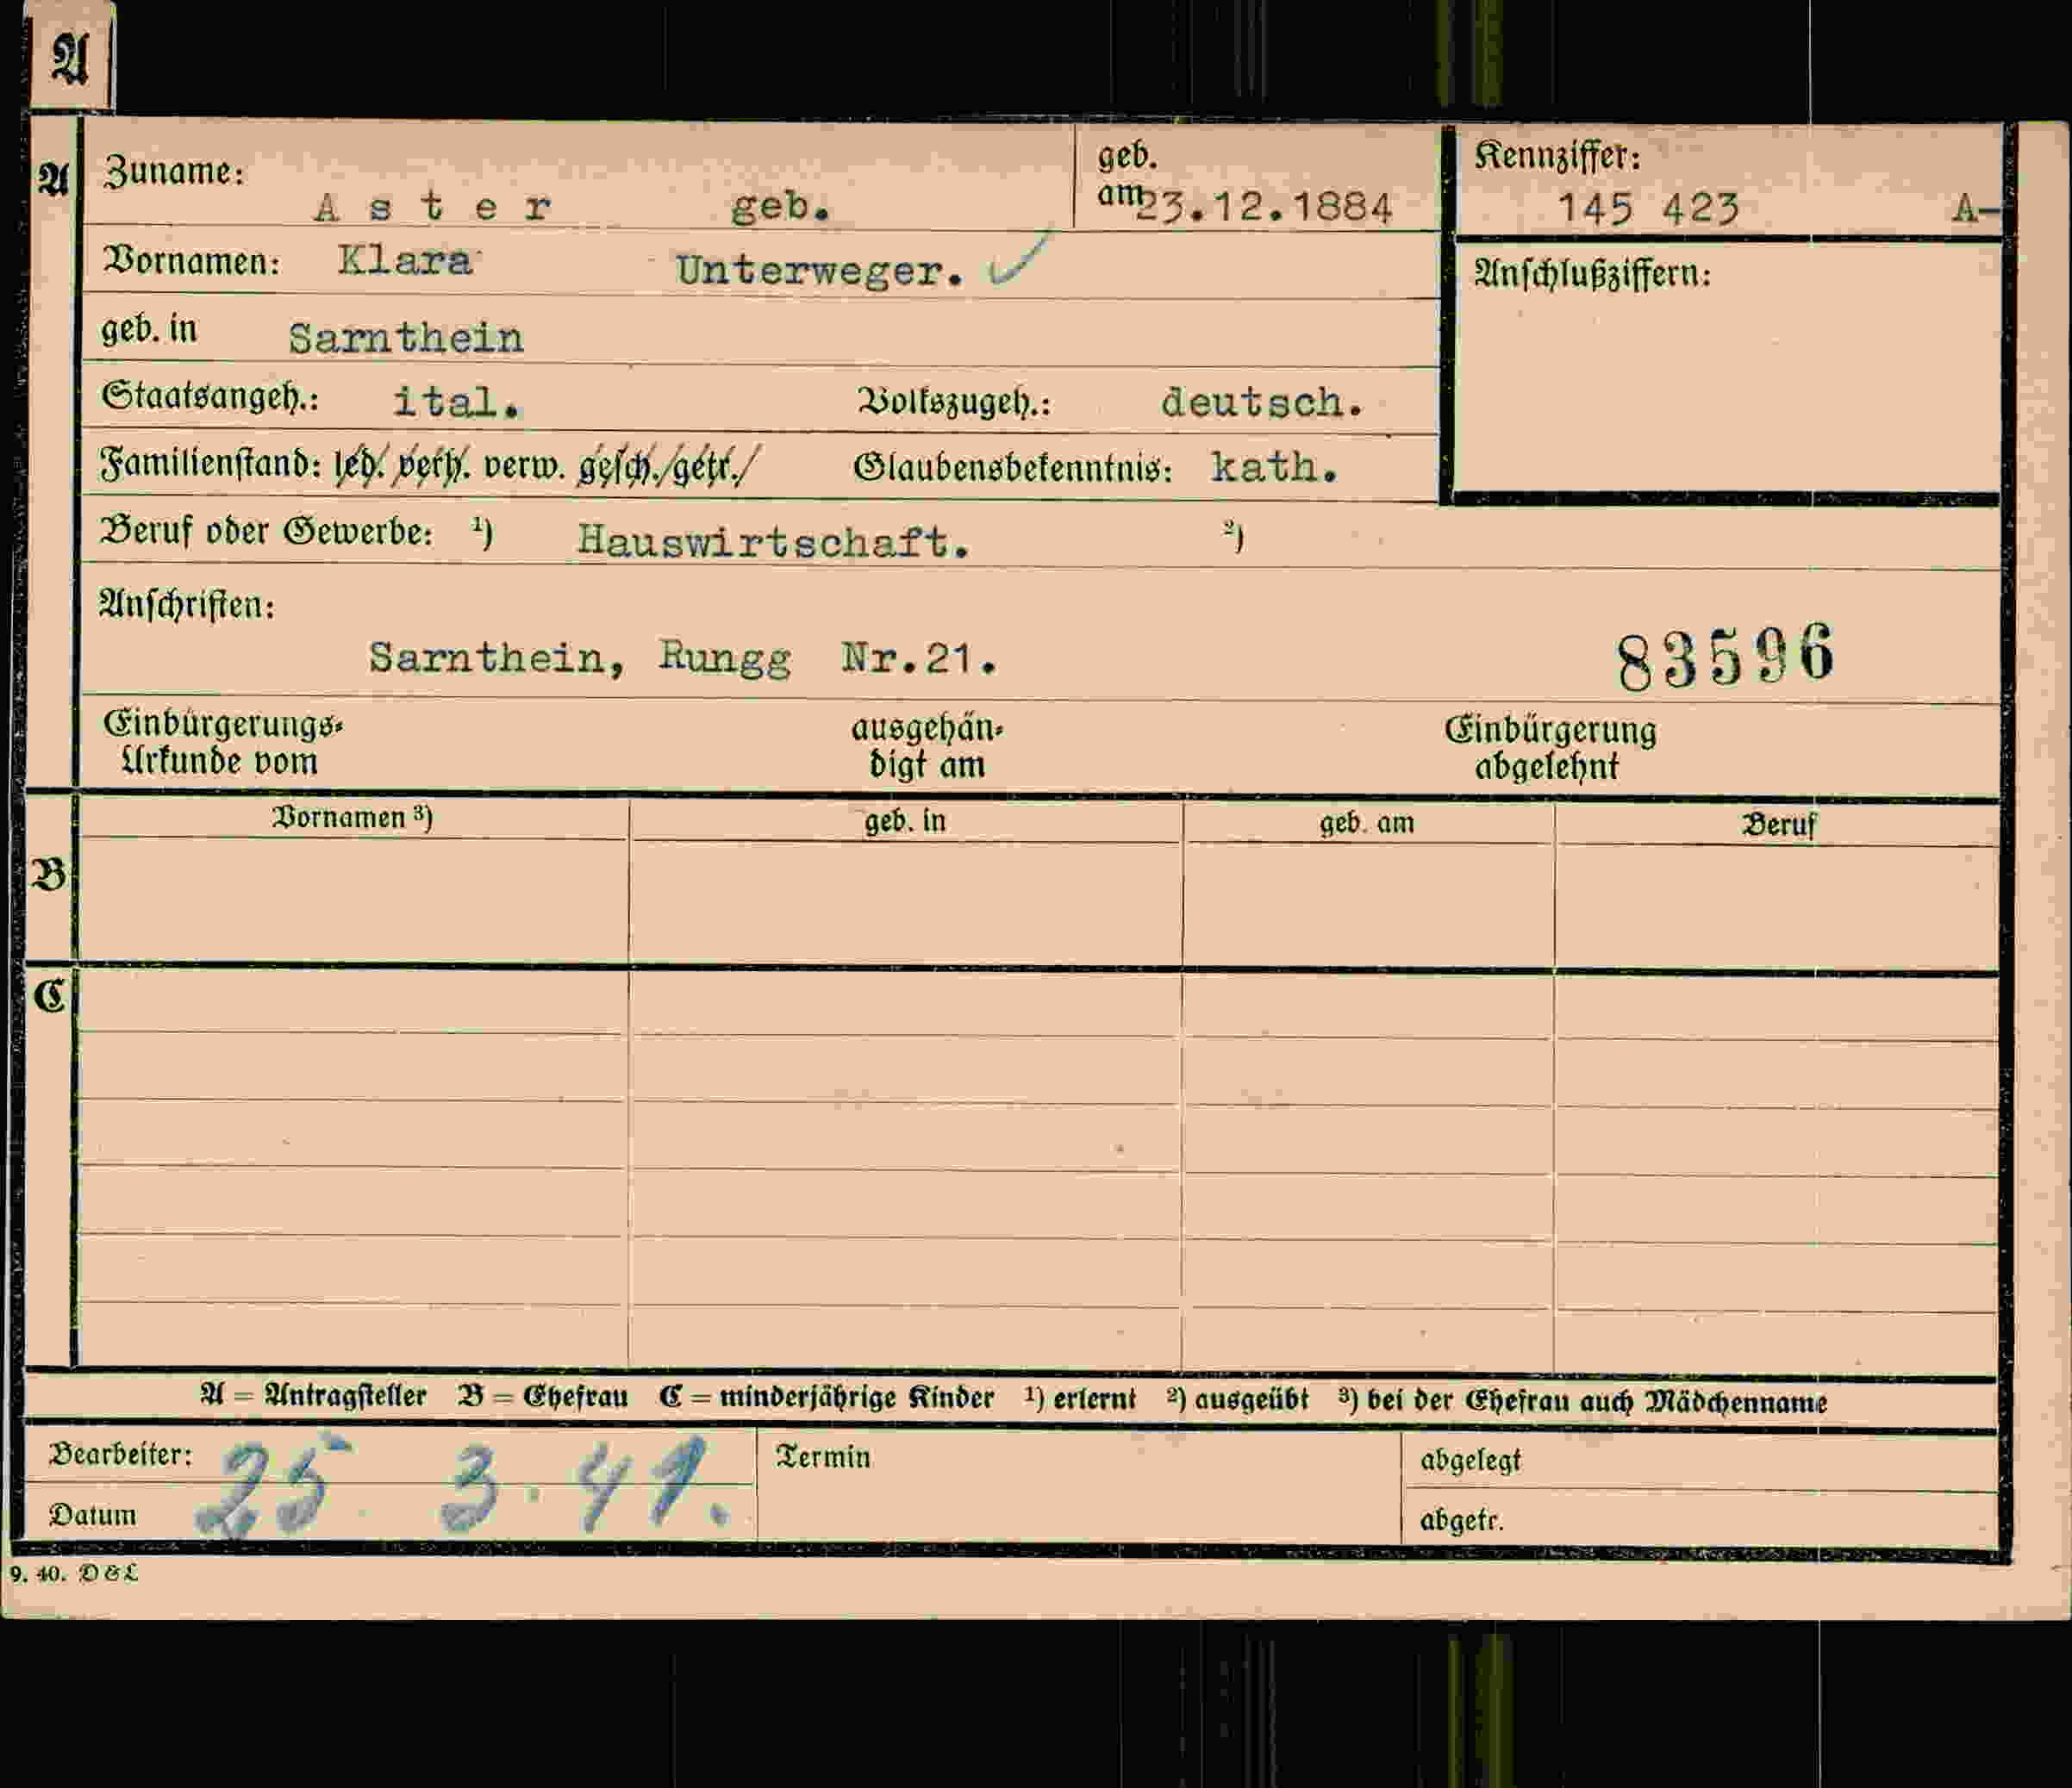 A
A Zuname: Aster geb. geb. am 23.12.1884 Kennziffer: 145 423 A-
Vornamen: Klara Unterweger. ✓ Anschlußziffern:
geb. in Sarnthein
Staatsangeh.: ital. Volkszugeh.: deutsch.
Familienstand: led. verh. verw. gesch./getr./ Glaubensbekenntnis: kath.
Beruf oder Gewerbe: ¹) Hauswirtschaft. ²)
Anschriften:
Sarnthein, Rungg Nr.21. 83596
Einbürgerungs- ausgehän- Einbürgerung
Urkunde vom digt am abgelehnt
Vornamen ³) geb. in geb. am Beruf
B
C
A = Antragsteller B = Ehefrau C = minderjährige Kinder ¹) erlernt ²) ausgeübt ³) bei der Ehefrau auch Mädchenname
Bearbeiter: 25 3. 41. Termin abgelegt
Datum abgetr.
9. 40. D & L